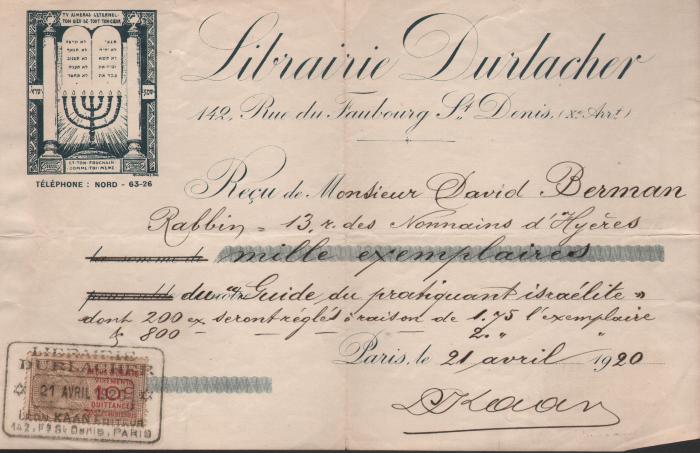 TU AIMERAS L'ETERNEL
TON DIEU DE TOUT TON CŒUR
ET TON PROCHAIN
COMME TOI-MEME
TÉLÉPHONE : NORD - 63-26
Librairie Durlacher
142, Rue du Faubourg St Denis, (Xe Arrt)
Reçu de Monsieur David Berman
Rabbin = 13, r. des Nonnains d'Hyères
mille exemplaires
du "Guide du pratiquant israélite"
dont 200 ex. seront réglés à raison de 1.75 l'exemplaire
& 800 — — — — 2. " "
Paris, le 21 avril 1920
LKaan
LIBRAIRIE
DURLACHER
21 AVRIL
LÉON KAAN EDITEUR
142, Fg St Denis, PARIS
10c
QUITTANCES